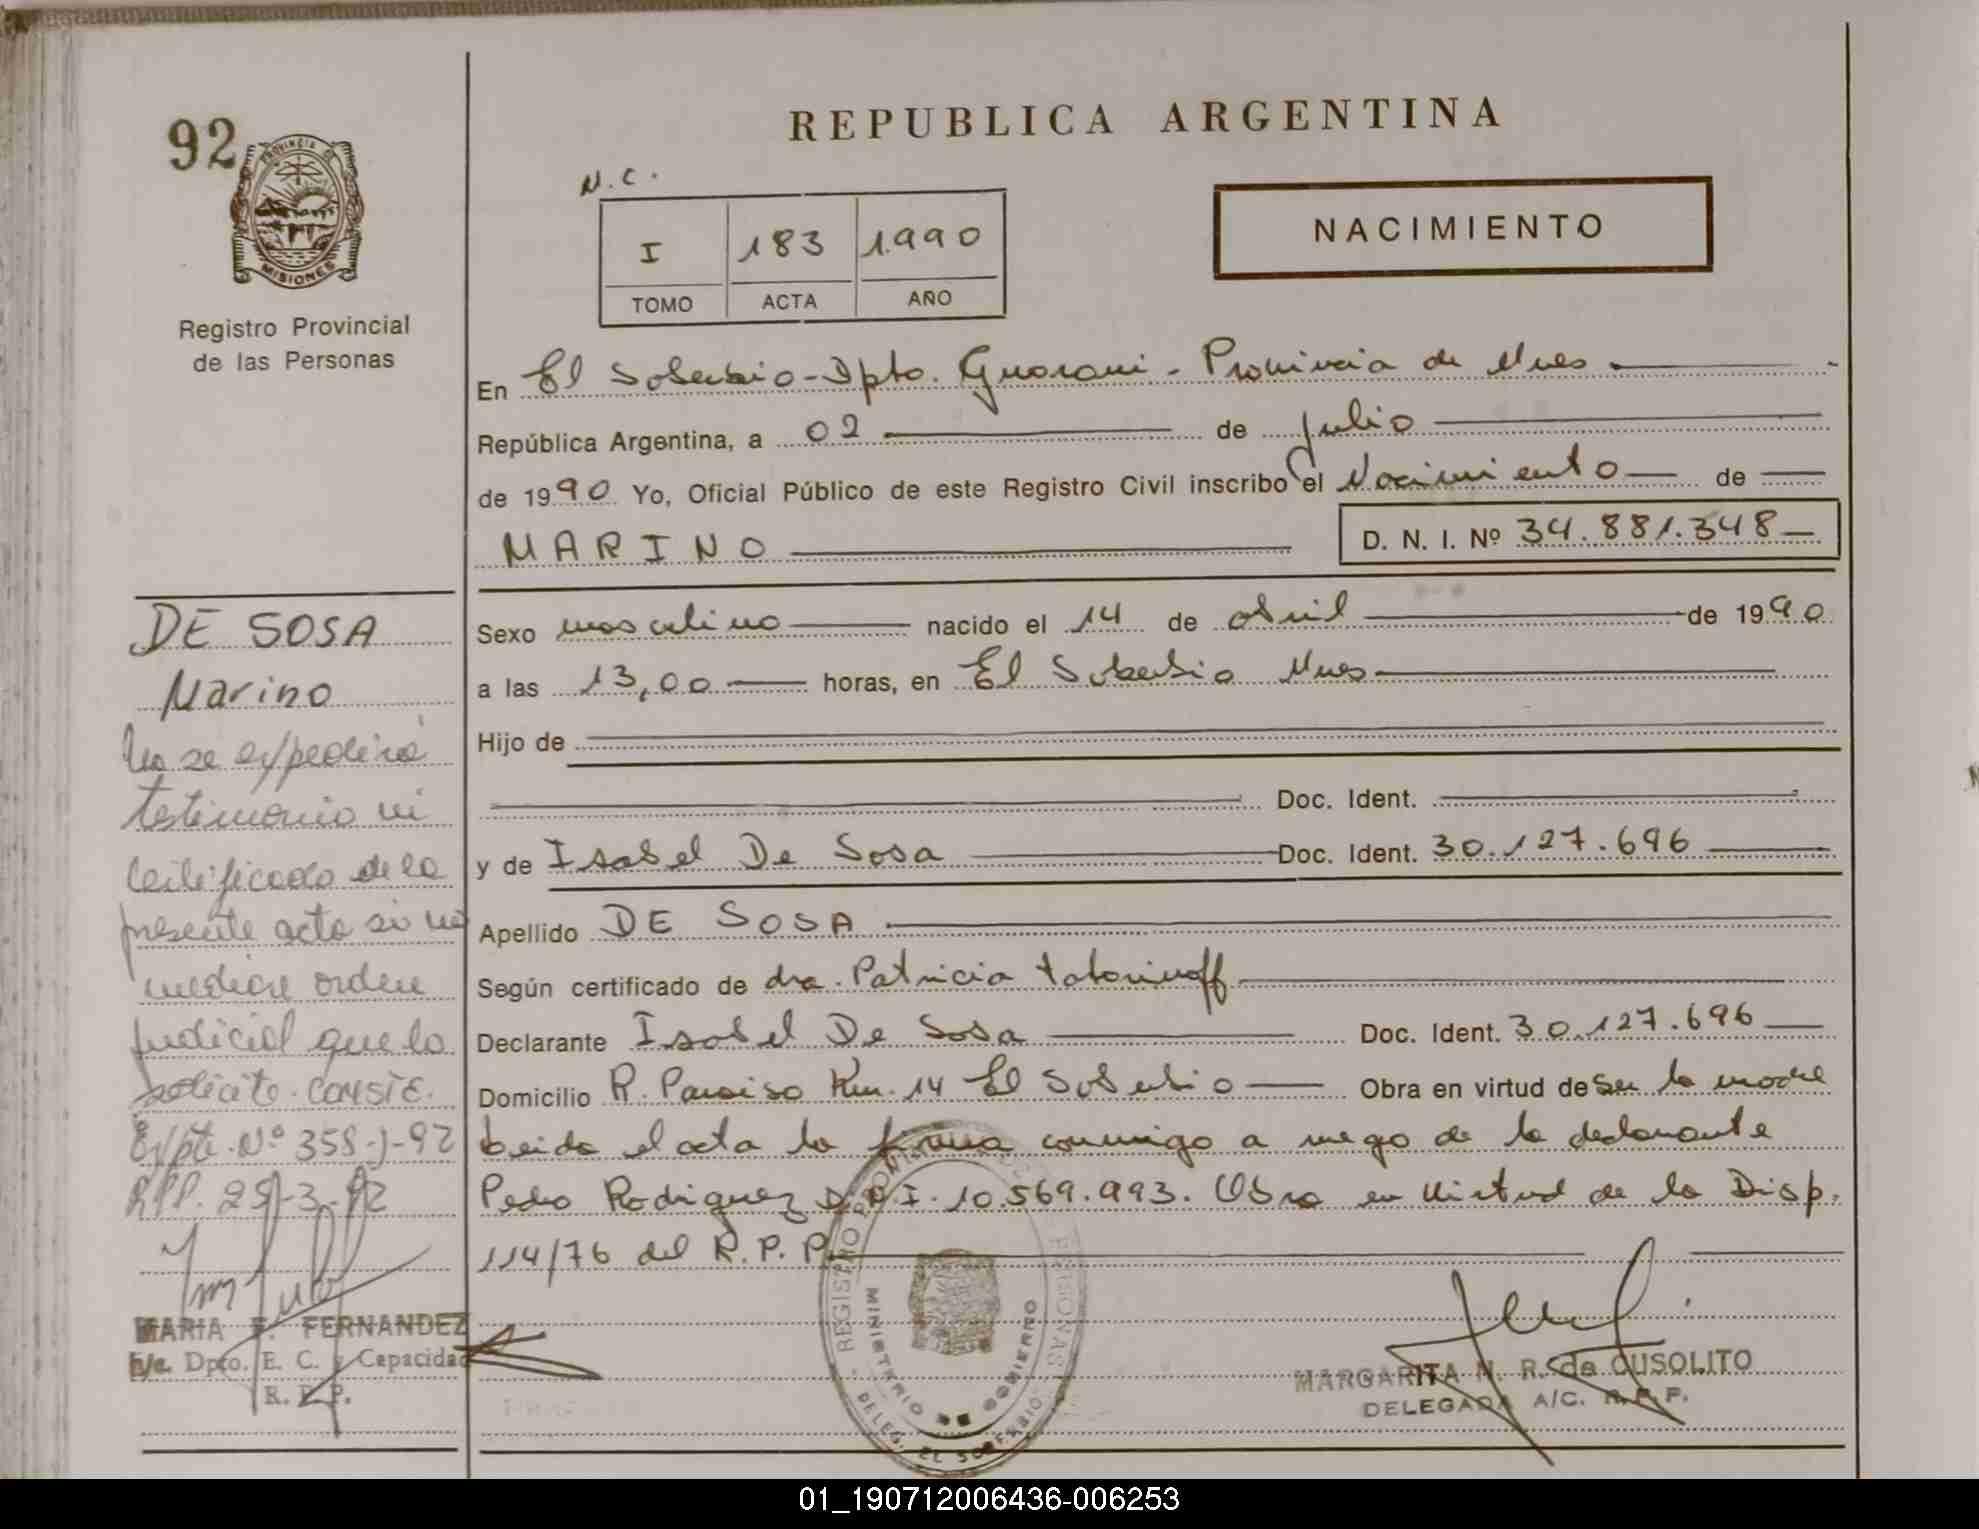 92
PROVINCIA DE
MISIONES
Registro Provincial
de las Personas
REPUBLICA ARGENTINA
N.C.
I 183 1.990
TOMO ACTA AÑO
NACIMIENTO
En El Soberbio-Dpto. Guarani - Provincia de Mnes
República Argentina, a 02 de julio
de 1990 Yo, Oficial Público de este Registro Civil inscribo el Nacimiento de
MARINO
D. N. I. Nº 34.881.348
Sexo masculino nacido el 14 de abril de 1990
a las 13,00 horas, en El Soberbio Mnes
Hijo de
Doc. Ident.
y de Isabel De Sosa Doc. Ident. 30.127.696
Apellido DE SOSA
Según certificado de dra. Patricia
Declarante Isabel De Sosa Doc. Ident. 30.127.696
Domicilio R. Paraiso Km. 14 El Soberbio Obra en virtud de ser la madre
leida el acta la firma conmigo a ruego de la declarante
Pedro Rodriguez D.N.I. 10.569.993. Obra en virtud de la Disp.
114/76 del R.P.P.
DE SOSA
Marino
No se expedirá
testimonio ni
certificado de la
presente acta si no
mediare orden
judicial que lo
solicite. CONSTE.
Expte. Nº 358-J-92
RPP. 25-3-92
MARIA F. FERNANDEZ
a/c. Dpto. E. C. y Capacidad
R. P. P.
REGISTRO PROVINCIAL DE LAS PERSONAS
MINISTERIO DE GOBIERNO
DELEG. EL SOBERBIO
MARGARITA N. R. de CUSOLITO
DELEGADA A/C. R. P. P.
01_190712006436-006253